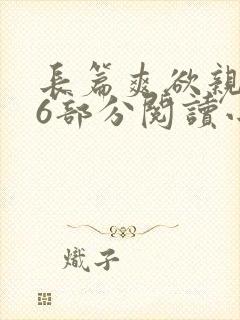 長篇爽欲親
6部分閱讀小
熾子